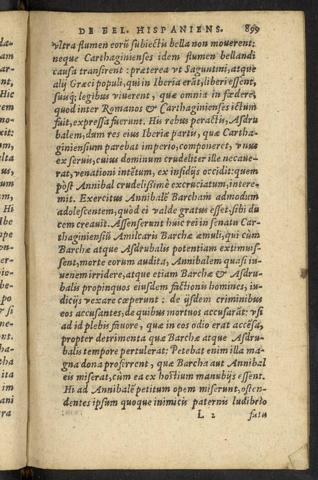 DE BEL. HISPANIENS. 899
vltra flumen eorū subiectis bella non mouerent:
neque Carthaginienses idem flumen bellandi
causa transirent : præterea vt Saguntini, atque
alij Græci populi, qui in Iberia erāt, liberi essent,
suisq; legibus viuerent, quæ omnia in fœdere,
quod inter Romanos & Carthaginienses ictum
fuit, expressa fuerunt. His rebus peractis, Asdru
balem, dum res eius Iberiæ partis, quæ Cartha-
giniensium parebat imperio, componeret, vnus
ex seruis, cuius dominum crudeliter ille necaue-
rat, venationi intētum, ex insidijs occidit: quem
pòst Annibal crudelißimè excruciatum, intere-
mit. Exercitus Annibalē Barcham admodum
adolescentem, quòd ei valde gratus esset, sibi du
cem creauit. Assenserunt huic rei in senatu Car-
thaginiensiū Amilcaris Barchæ æmuli, qui cùm
Barchæ atque Asdrubalis potentiam extimuis-
sent, morte eorum audita, Annibalem quasi iu-
uenem irridere, atque etiam Barchæ & Asdru-
balis propinquos eiusdem factionis homines, iu-
dicijs vexare cœperunt : de ijsdem criminibus
eos accusantes, de quibus mortuos accusarāt: vt si
ad id plebis fauore, quæ in eos odio erat accēsa,
propter detrimenta quæ Barchæ atque Asdru-
balis tempore pertulerat: Petebat enim illa ma-
gna dona proferrent, quæ Barcha aut Annibal
eis miserat, cùm ea ex hostium manubijs essent.
Hi ad Annibalē petitum opem miserunt, osten-
dentes ipsum quoque inimicis paternis ludibrio
L 2 futu